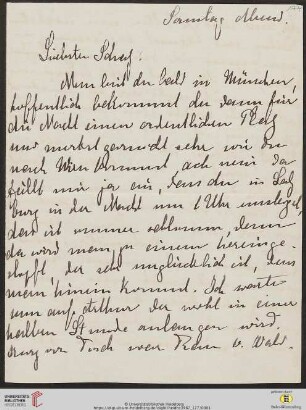 Sonntag Abend.
Liebster Schatz!
Nun bist du bald in München,
hoffentlich bekommst du dann für
die Nacht einen ordentlichen Platz
und merkst gar nicht sehr wie du
nach Wien kommst ach nein da
fällt mir ja ein, dass du in Salz
burg in der Nacht um 1 Uhr umsteigst
das ist immer schlimm, denn
da wird man zu einem hereinge
stopft, der sehr unglücklich ist, dass
man hinein kommt. Ich warte
nun auf Arthur der wohl in einer
halben Stunde anlangen wird,
zu Tisch war v. Wald.
UNIVERSITÄTS-
BIBLIOTHEK
HEIDELBERG
© Universitätsbibliothek Heidelberg